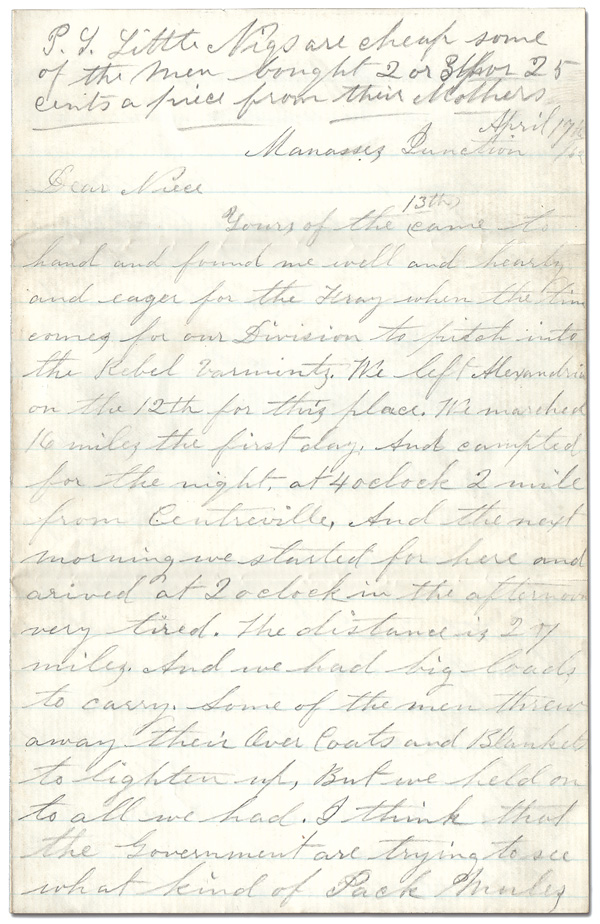 P. S. Little Nigs are cheap some
of the men bought 2 or 3 for 25
cents a piece from their Mothers
April 17th
Manassez Junction /62
Dear Niece
Yours of the 13th came to
hand and found me well and hearty
and eager for the Fray when the time
comes for our Division to pitch into
the Rebel Varmintz. We left Alexandria
on the 12th for this place. We marched
16 milez the first day. And campted
for the night, at 4 oclock 2 mile
from Centreville, And the next
morning we started for here and
arived at 2 oclock in the afternoon
very tired. The distance iz 27
milez. And we had big loads
to carry. Some of the men threw
away their Over Coats and Blankets
to lighten up, But we held on
to all we had. I think that
the Government are trying to see
what kind of Pack Mulez